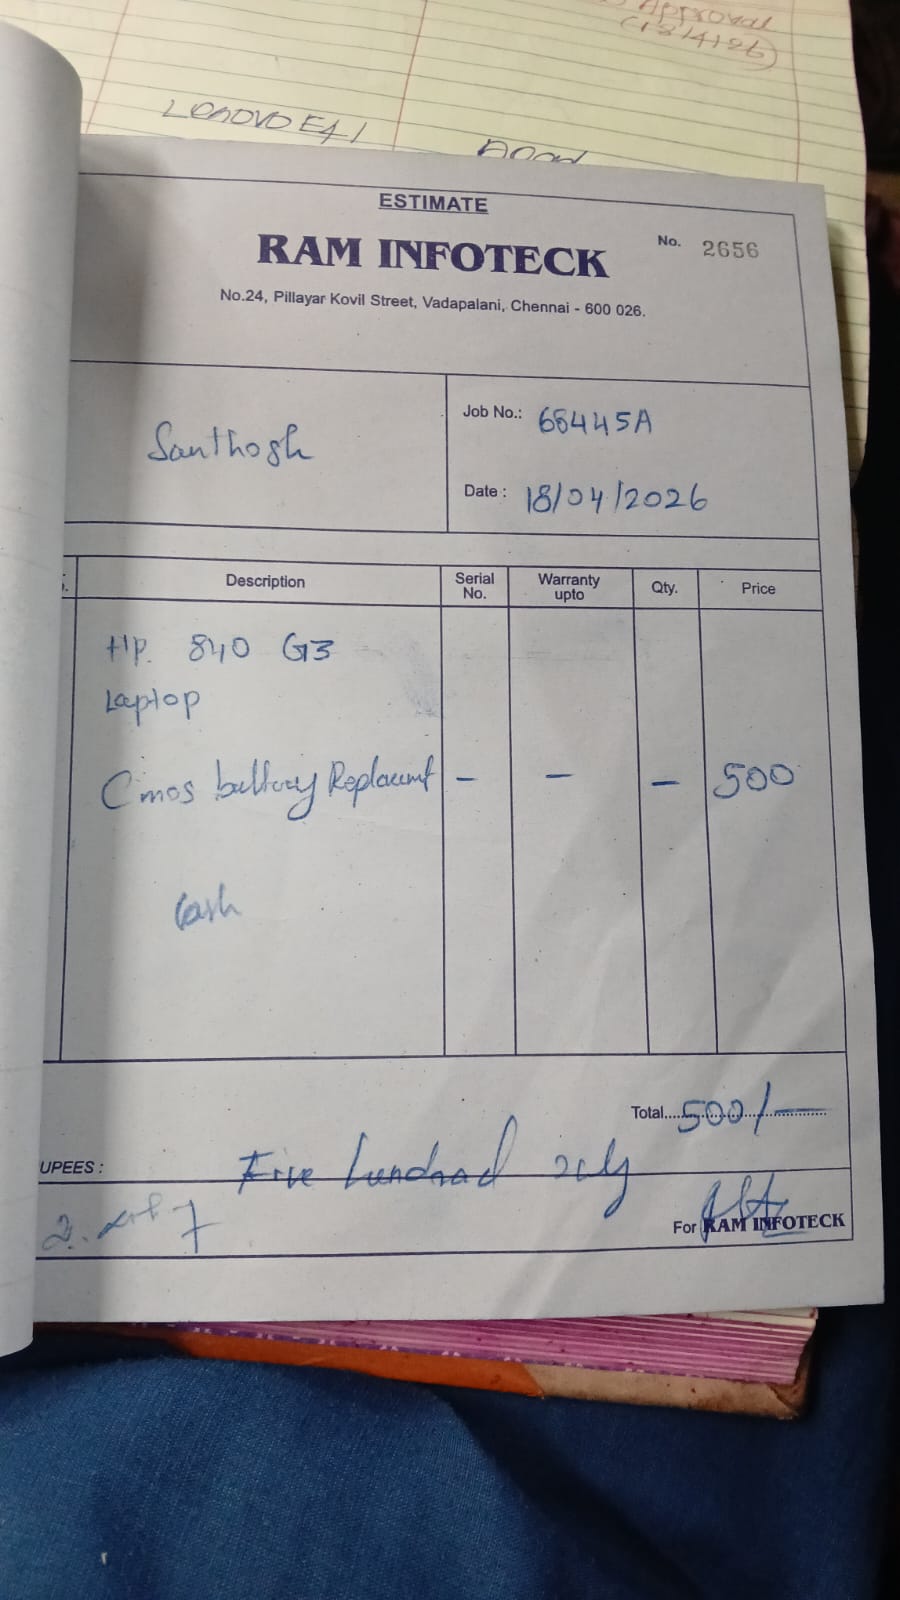 Approval
(13/4/26)
Lenovo E41
ESTIMATE
RAM INFOTECK
No. 2656
No.24, Pillayar Kovil Street, Vadapalani, Chennai - 600 026.
Santhosh
Job No.: 68445A
Date : 18/04/2026
Description Serial No. Warranty upto Qty. Price
HP. 840 G3
Laptop
Cmos battery Replacemnt - - - 500
Cash
Total.... 500/-
UPEES : Five hundrad only
For RAM INFOTECK